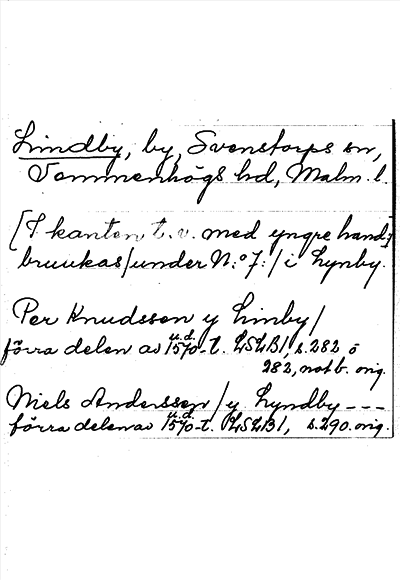 Lindby, by, Svenstorps sn,
Vemmenhögs hd, Malm. l.
[I kanten t. v. med yngre hand:]
bruukas/under N:o 7:/i Lynby.
Per Knudssøn y Limby/
förra delen av 1570-t. u.d. LSLB1, s. 282 ö
282, not b. orig.
Niels Anderssøn/y Lyndby ---
förra delen av 1570-t. u.d. LSLB1, s. 290. orig.